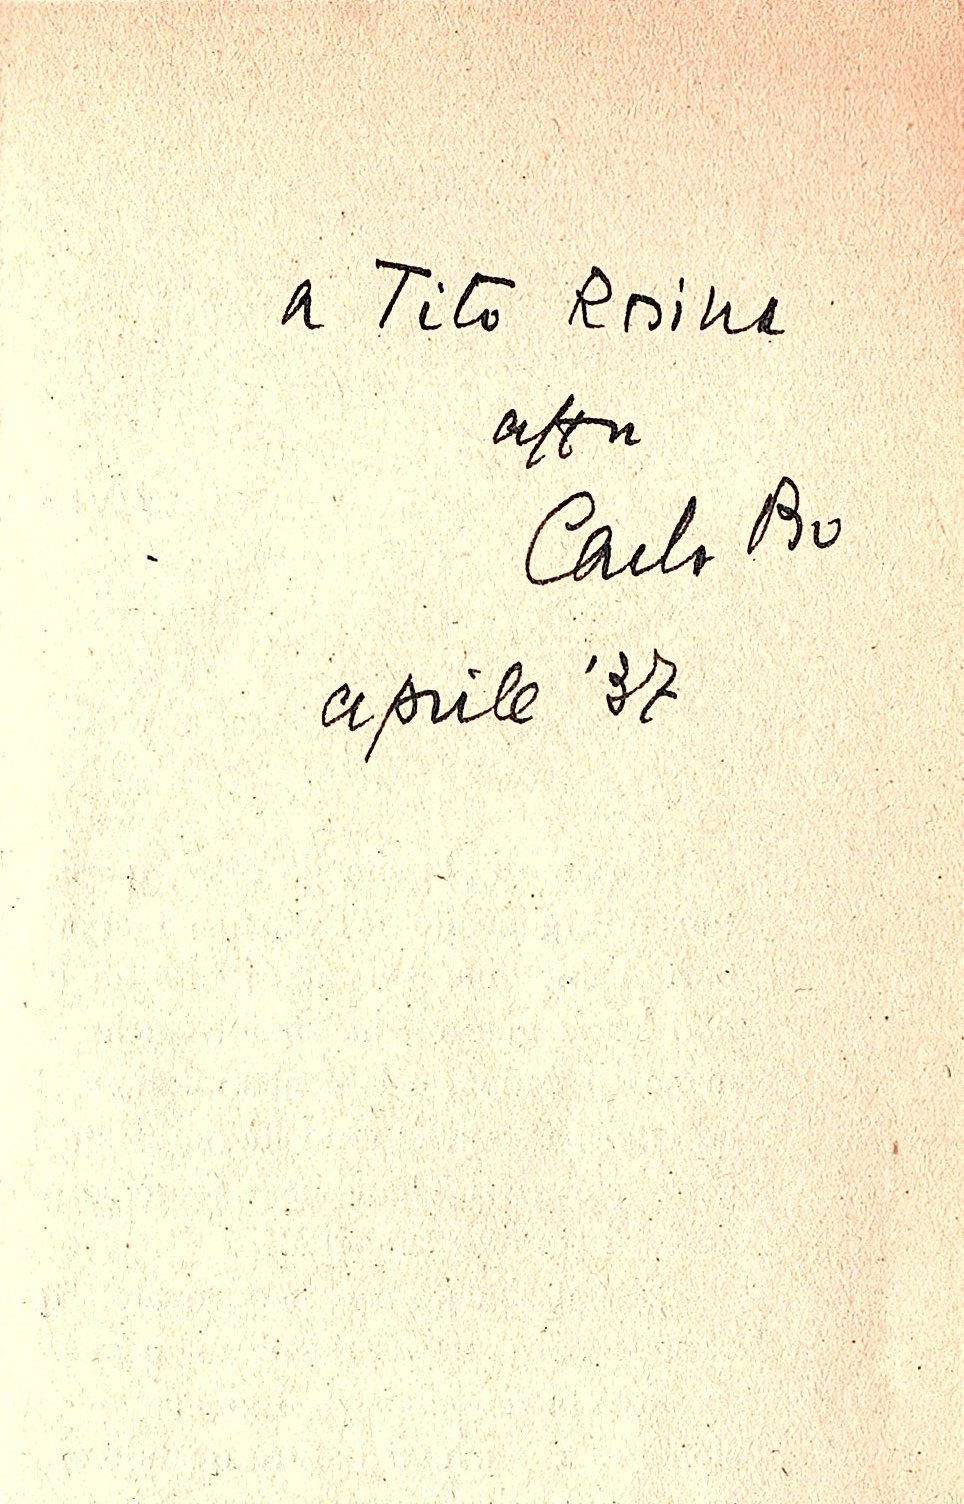 a Tito Rosina
aff.
Carlo Bo
aprile '37